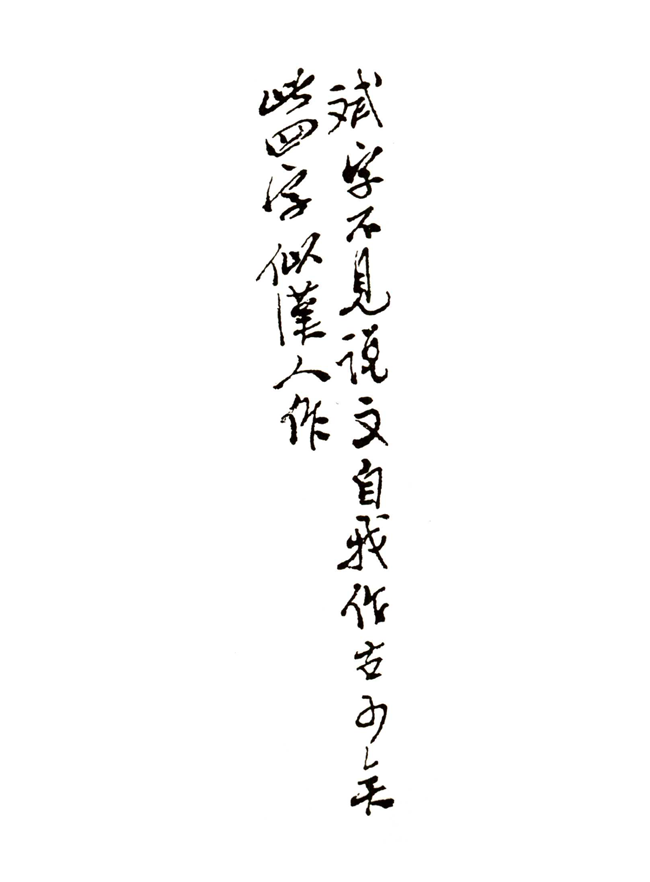 斌字不見說文自我作古可矣
此四字似漢人作